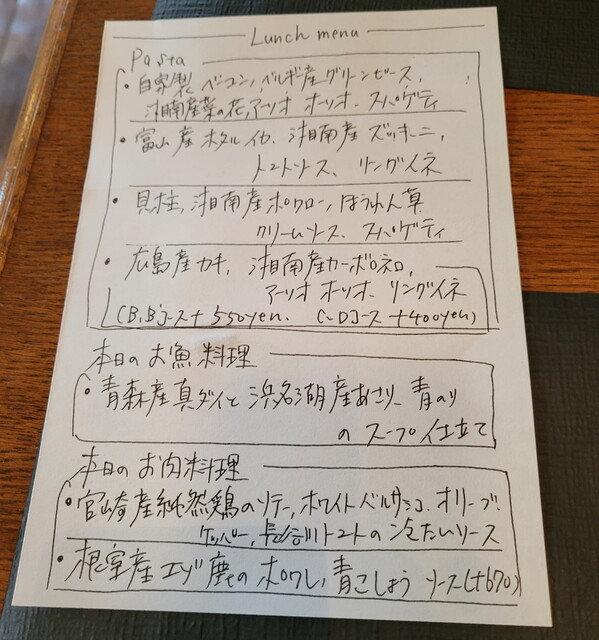 Lunch menu
Pasta
・自家製 ベーコン, ベルギー産グリーンピース,
湘南産菜の花, アーリオ オーリオ、スパゲティ
・富山産 ホタルイカ、湘南産 ズッキーニ,
トマトソース、リングイネ
・貝柱, 湘南産ポワロー, ほうれん草
クリームソース、スパゲティ
・広島産カキ, 湘南産カーボロネロ,
アーリオ オーリオ、リングイネ
(B, B'コース + 550yen. C~Dコース +400yen)
本日のお魚料理
・青森産真ダイと浜名湖産あさり、青のり
のスープ仕立て
本日のお肉料理
・宮崎産純然鶏のソテー, ホワイトバルサミコ, オリーブ,
ケッパー, 長谷川トマトの冷たいソース
・根室産エゾ鹿のポワレ, 青こしょう ソース(+670)